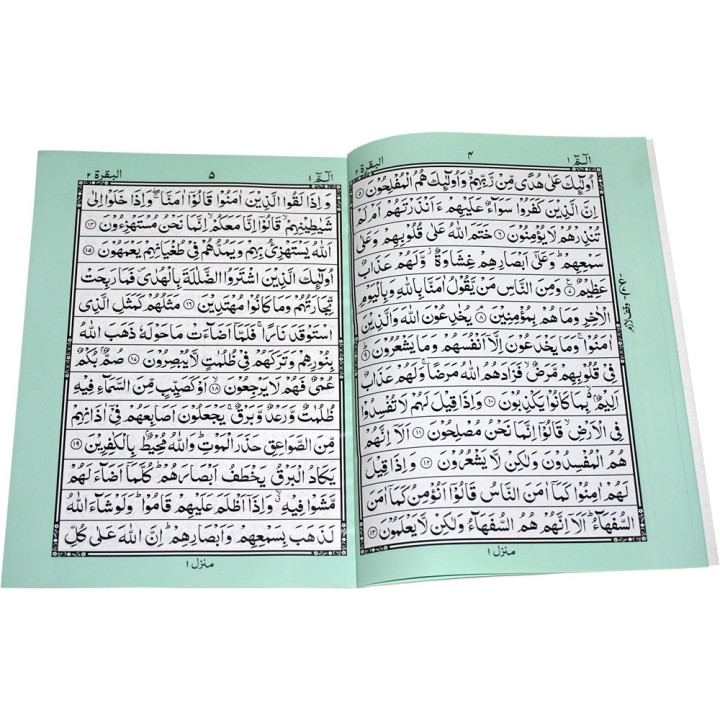 الٓمّٓ ١
۴
البقرة ٢
اُولٰٓئِكَ عَلٰى هُدًى مِّنْ رَّبِّهِمْ ۗ وَاُولٰٓئِكَ هُمُ الْمُفْلِحُوْنَ ۝٥
اِنَّ الَّذِيْنَ كَفَرُوْا سَوَآءٌ عَلَيْهِمْ ءَاَنْذَرْتَهُمْ اَمْ لَمْ
تُنْذِرْهُمْ لَا يُؤْمِنُوْنَ ۝٦ خَتَمَ اللّٰهُ عَلٰى قُلُوْبِهِمْ وَعَلٰى
سَمْعِهِمْ ؕ وَعَلٰٓى اَبْصَارِهِمْ غِشَاوَةٌ ۫ وَّلَهُمْ عَذَابٌ
عَظِيْمٌ ۝٧ وَمِنَ النَّاسِ مَنْ يَّقُوْلُ اٰمَنَّا بِاللّٰهِ وَبِالْيَوْمِ
الْاٰخِرِ وَمَا هُمْ بِمُؤْمِنِيْنَ ۝٨ يُخٰدِعُوْنَ اللّٰهَ وَالَّذِيْنَ
اٰمَنُوْا ۚ وَمَا يَخْدَعُوْنَ اِلَّآ اَنْفُسَهُمْ وَمَا يَشْعُرُوْنَ ۝٩
فِيْ قُلُوْبِهِمْ مَّرَضٌ ۙ فَزَادَهُمُ اللّٰهُ مَرَضًا ۚ وَلَهُمْ عَذَابٌ
اَلِيْمٌۢ ۙ بِمَا كَانُوْا يَكْذِبُوْنَ ۝١٠ وَاِذَا قِيْلَ لَهُمْ لَا تُفْسِدُوْا
فِى الْاَرْضِ ۙ قَالُوْٓا اِنَّمَا نَحْنُ مُصْلِحُوْنَ ۝١١ اَلَآ اِنَّهُمْ
هُمُ الْمُفْسِدُوْنَ وَلٰكِنْ لَّا يَشْعُرُوْنَ ۝١٢ وَاِذَا قِيْلَ
لَهُمْ اٰمِنُوْا كَمَآ اٰمَنَ النَّاسُ قَالُوْٓا اَنُؤْمِنُ كَمَآ اٰمَنَ
السُّفَهَآءُ ؕ اَلَآ اِنَّهُمْ هُمُ السُّفَهَآءُ وَلٰكِنْ لَّا يَعْلَمُوْنَ ۝١٣
منزل ١
الٓمّٓ ١
۵
البقرة ٢
وَاِذَا لَقُوا الَّذِيْنَ اٰمَنُوْا قَالُوْٓا اٰمَنَّا ۚ وَاِذَا خَلَوْا اِلٰى
شَيٰطِيْنِهِمْ ۙ قَالُوْٓا اِنَّا مَعَكُمْ ۙ اِنَّمَا نَحْنُ مُسْتَهْزِءُوْنَ ۝١٤
اَللّٰهُ يَسْتَهْزِئُ بِهِمْ وَيَمُدُّهُمْ فِيْ طُغْيَانِهِمْ يَعْمَهُوْنَ ۝١٥
اُولٰٓئِكَ الَّذِيْنَ اشْتَرَوُا الضَّلٰلَةَ بِالْهُدٰى ۪ فَمَا رَبِحَتْ
تِّجَارَتُهُمْ وَمَا كَانُوْا مُهْتَدِيْنَ ۝١٦ مَثَلُهُمْ كَمَثَلِ الَّذِى
اسْتَوْقَدَ نَارًا ۚ فَلَمَّآ اَضَآءَتْ مَا حَوْلَهٗ ذَهَبَ اللّٰهُ
بِنُوْرِهِمْ وَتَرَكَهُمْ فِيْ ظُلُمٰتٍ لَّا يُبْصِرُوْنَ ۝١٧ صُمٌّۢ بُكْمٌ
عُمْيٌ فَهُمْ لَا يَرْجِعُوْنَ ۝١٨ اَوْ كَصَيِّبٍ مِّنَ السَّمَآءِ فِيْهِ
ظُلُمٰتٌ وَّرَعْدٌ وَّبَرْقٌ ۚ يَجْعَلُوْنَ اَصَابِعَهُمْ فِيْٓ اٰذَانِهِمْ
مِّنَ الصَّوَاعِقِ حَذَرَ الْمَوْتِ ؕ وَاللّٰهُ مُحِيْطٌۢ بِالْكٰفِرِيْنَ ۝١٩
يَكَادُ الْبَرْقُ يَخْطَفُ اَبْصَارَهُمْ ؕ كُلَّمَآ اَضَآءَ لَهُمْ
مَّشَوْا فِيْهِ ۙ وَاِذَآ اَظْلَمَ عَلَيْهِمْ قَامُوْا ؕ وَلَوْ شَآءَ اللّٰهُ
لَذَهَبَ بِسَمْعِهِمْ وَاَبْصَارِهِمْ ؕ اِنَّ اللّٰهَ عَلٰى كُلِّ
منزل ١